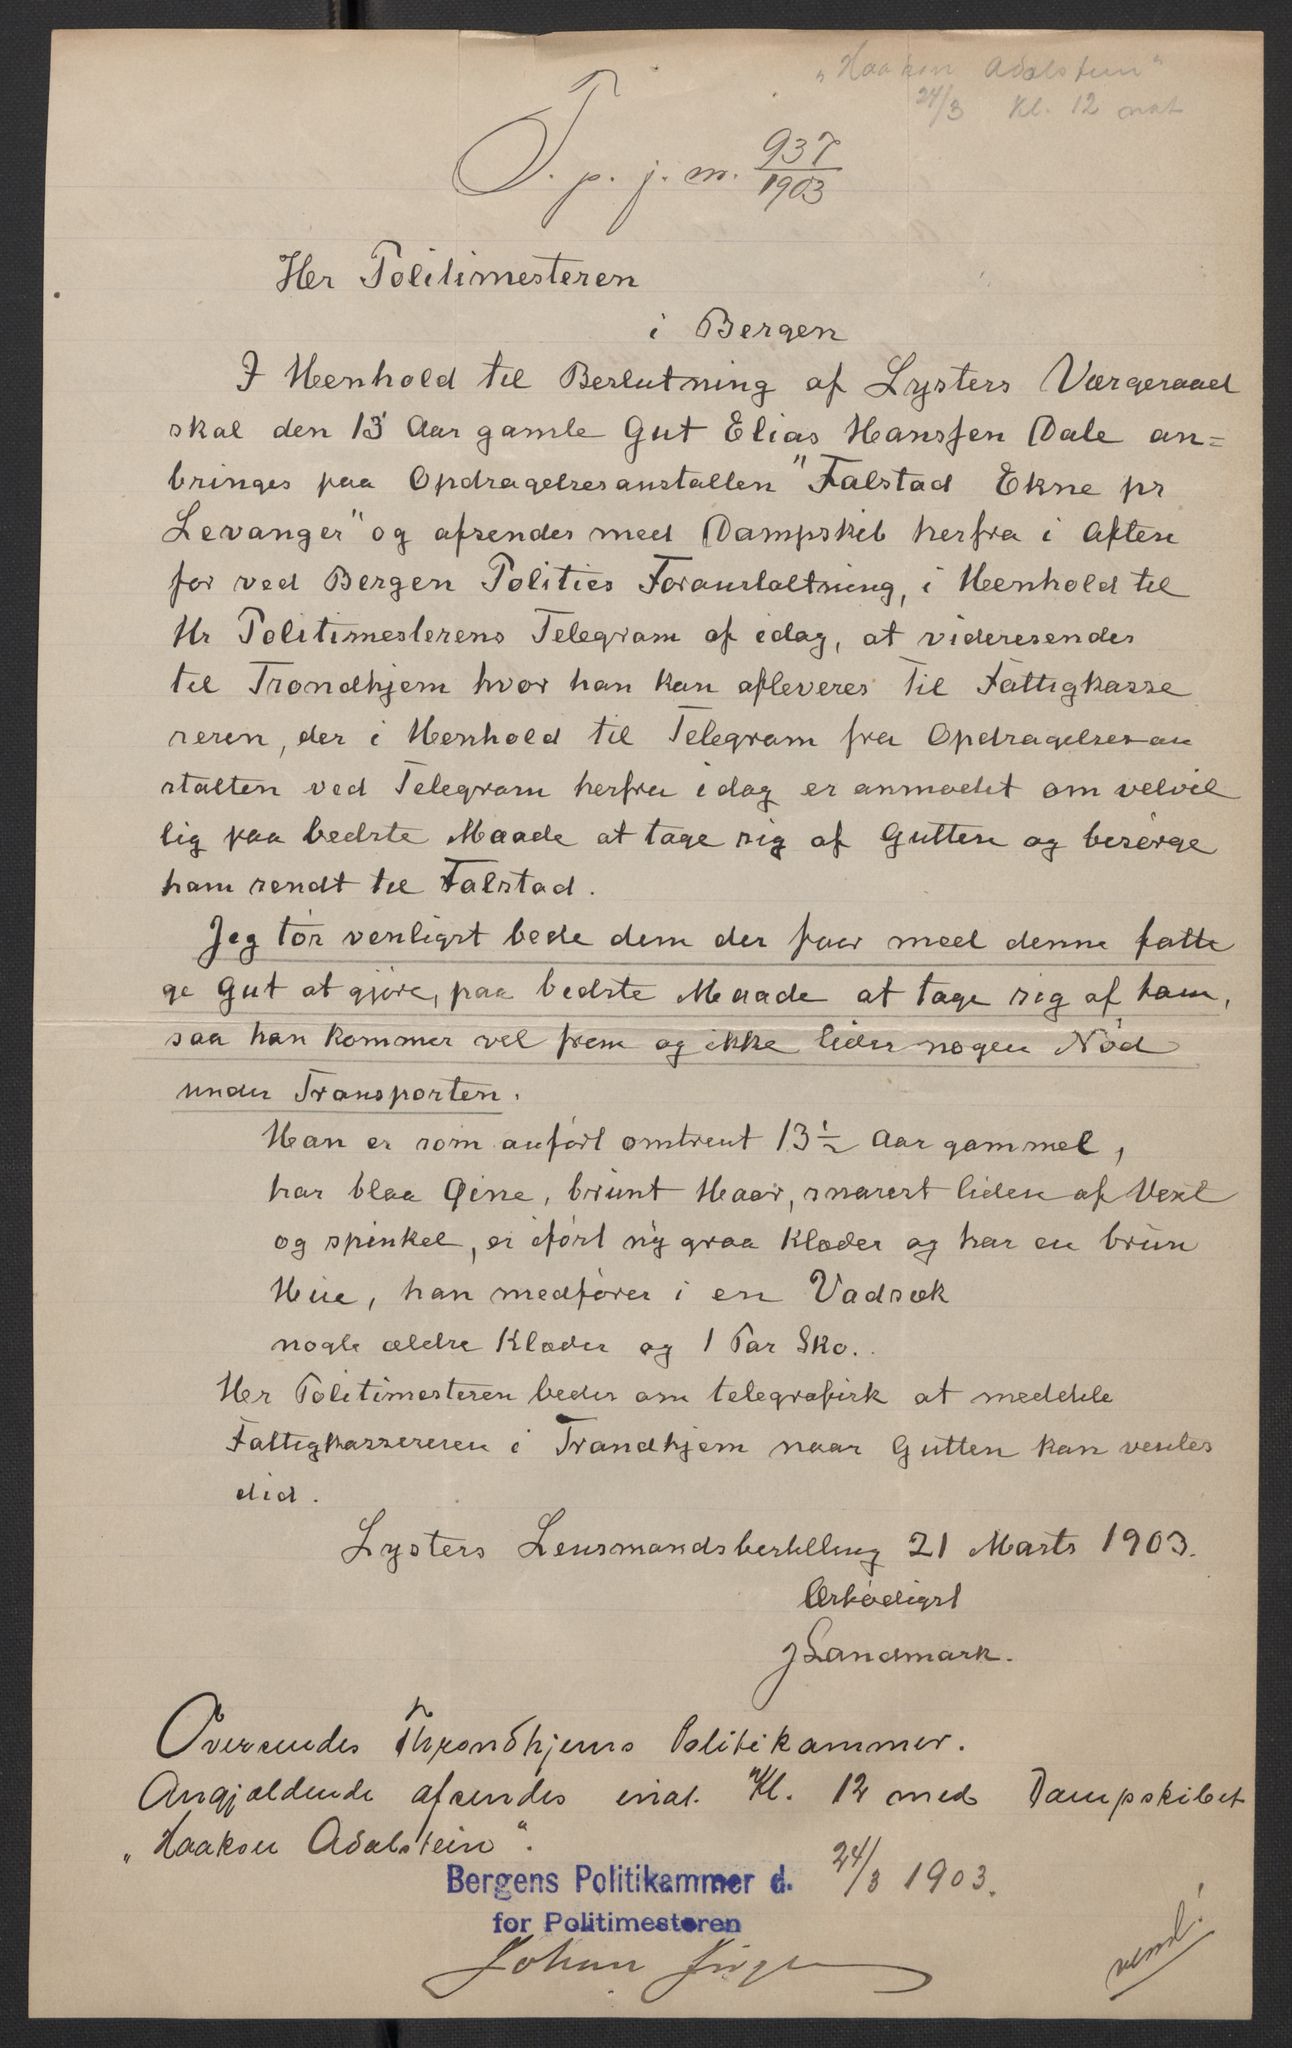 "Haakon Adalstein"
24/3 Kl. 12 nat
T. p. j. n. 937/1903
Her Politimesteren
i Bergen
I Henhold til Beslutning af Lysters Værgeraad
skal den 13 Aar gamle Gut Elias Hanssen Dale an=
bringes paa Opdragelsesanstalten "Falstad Ekne pr
Levanger" og afsendes med Dampskib herfra i Aften
for ved Bergen Polities Foranstaltning, i Henhold til
Hr Politimesterens Telegram af idag, at videresendes
til Trondhjem hvor han kan afleveres til Fattigkasse
reren, der i Henhold til Telegram fra Opdragelsesan
stalten ved Telegram herfra idag er anmodet om velvil
lig paa bedste Maade at tage sig af Gutten og besörge
ham sendt til Falstad.
Jeg tör venligst bede dem der faar med denne fatti
ge Gut at gjöre, paa bedste Maade at tage sig af ham,
saa han kommer vel frem og ikke lider nogen Nöd
under Transporten.
Han er som anfört omtrent 13 1/2 Aar gammel,
har blaa Øine, brunt Haar, snarest liden af Vext
og spinkel, er ifört ny graa Klæder og har en brun
Hue, han medförer i en Vadsæk
nogle ældre Klæder og 1 Par Sko.
Her Politimesteren bedes om telegrafisk at meddele
Fattigkassereren i Trondhjem naar Gutten kan ventes
did.
Lysters Lensmandsbestilling 21 Marts 1903.
Ærbödigst
J Landmark.
Oversendes Throndhjems Politikammer.
Angjældende afsendes inat Kl. 12 med Dampskibet
"Haakon Adalstein".
Bergens Politikammer d. 24/3 1903.
for Politimesteren
Johan
vend!